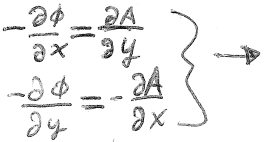 -∂φ/∂x = ∂A/∂y
-∂φ/∂y = -∂A/∂x } →